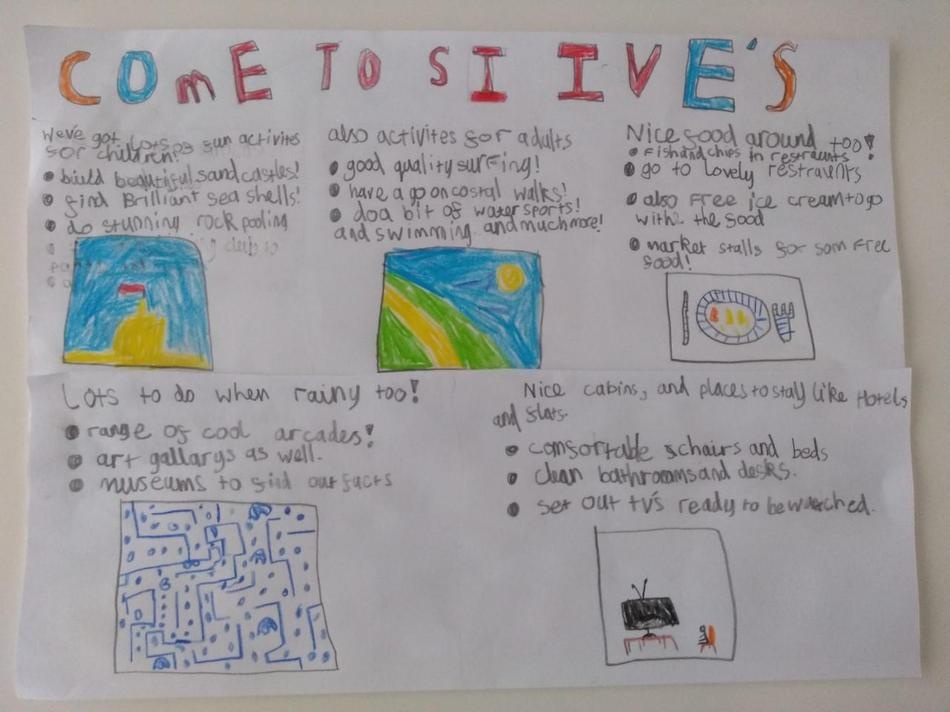 COmE TO SI IVE'S
We've got Lots of fun activites
for children!
build beautiful sand castles!
find Brilliant sea shells!
do stunning rock pooling
also activites for adults
good quality surfing!
have a go on costal walks!
do a bit of water sports!
and swimming and much more!
Nice food around too!
Fish and chips in restraunts
go to lovely restraunts
also Free ice cream to go
with the food
market stalls for som Free
food!
Lots to do when rainy too!
range of cool arcades!
art gallarys as well.
museums to find out facts
Nice cabins, and places to stay like Hotels
and flats.
comfortable chairs and beds
clean bathrooms and desks.
set out tv's ready to be watched.